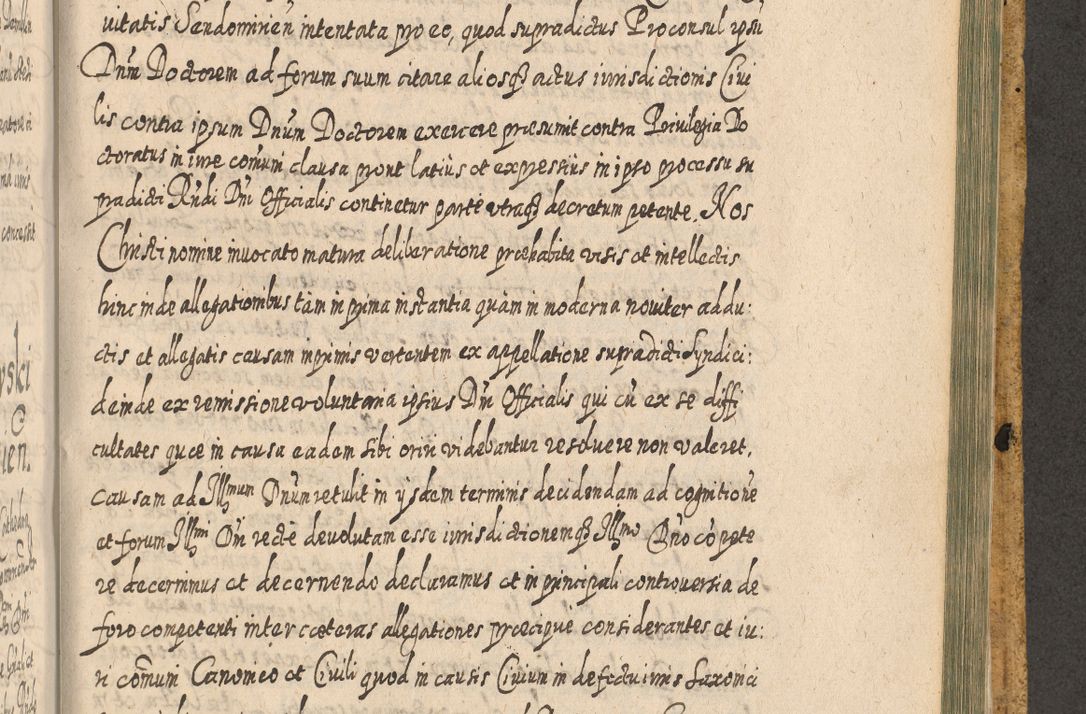 uitatis Sendomirien̄ intentata pro eo, quod supradictus Proconsul ipsu
Dn̄m Doctorem ad forum suum citare aliosq̃ actus iurisdictionis Ciui
lis contra ipsum Dnūm Doctorem exercere præsumit contra Priuilegia Do
ctoratus in iure com̄uni clausa prout latiùs et expressius in ipso processu su
pradicti Rn̄di Dn̄i Officialis continetur parte vtraq̃ decretum petente, Nos
Christi nomine inuocato matura deliberatione præhabita visis et intellectis
hinc inde allegationibus tàm in prima instantia quàm in moderna nouiter addu:
ctis et allegatis causam inprimis vertentem ex appellatione supradicti Syndici:
deinde ex remissione voluntaria ipsius Dn̄i Officialis qui cū ex se diffi
cultates quæ in causa eadem sibi oriri videbantur resoluere non valeret,
causam ad Illmum Dnūm retulit in ysdem terminis decidendam ad cognitionē
et forum Illmi Dn̄i rectè deuolutam esse iurisdictionemq̃ Illmo Dn̄o cōpete
re decernimus et decernendo declaramus et in principali controuersia de
foro competenti inter cæteras allegationes præcipue considerantes et iu:
ri com̄uni Canonico et Ciuili quod in causis Ciuium in defectu iuris Saxonici